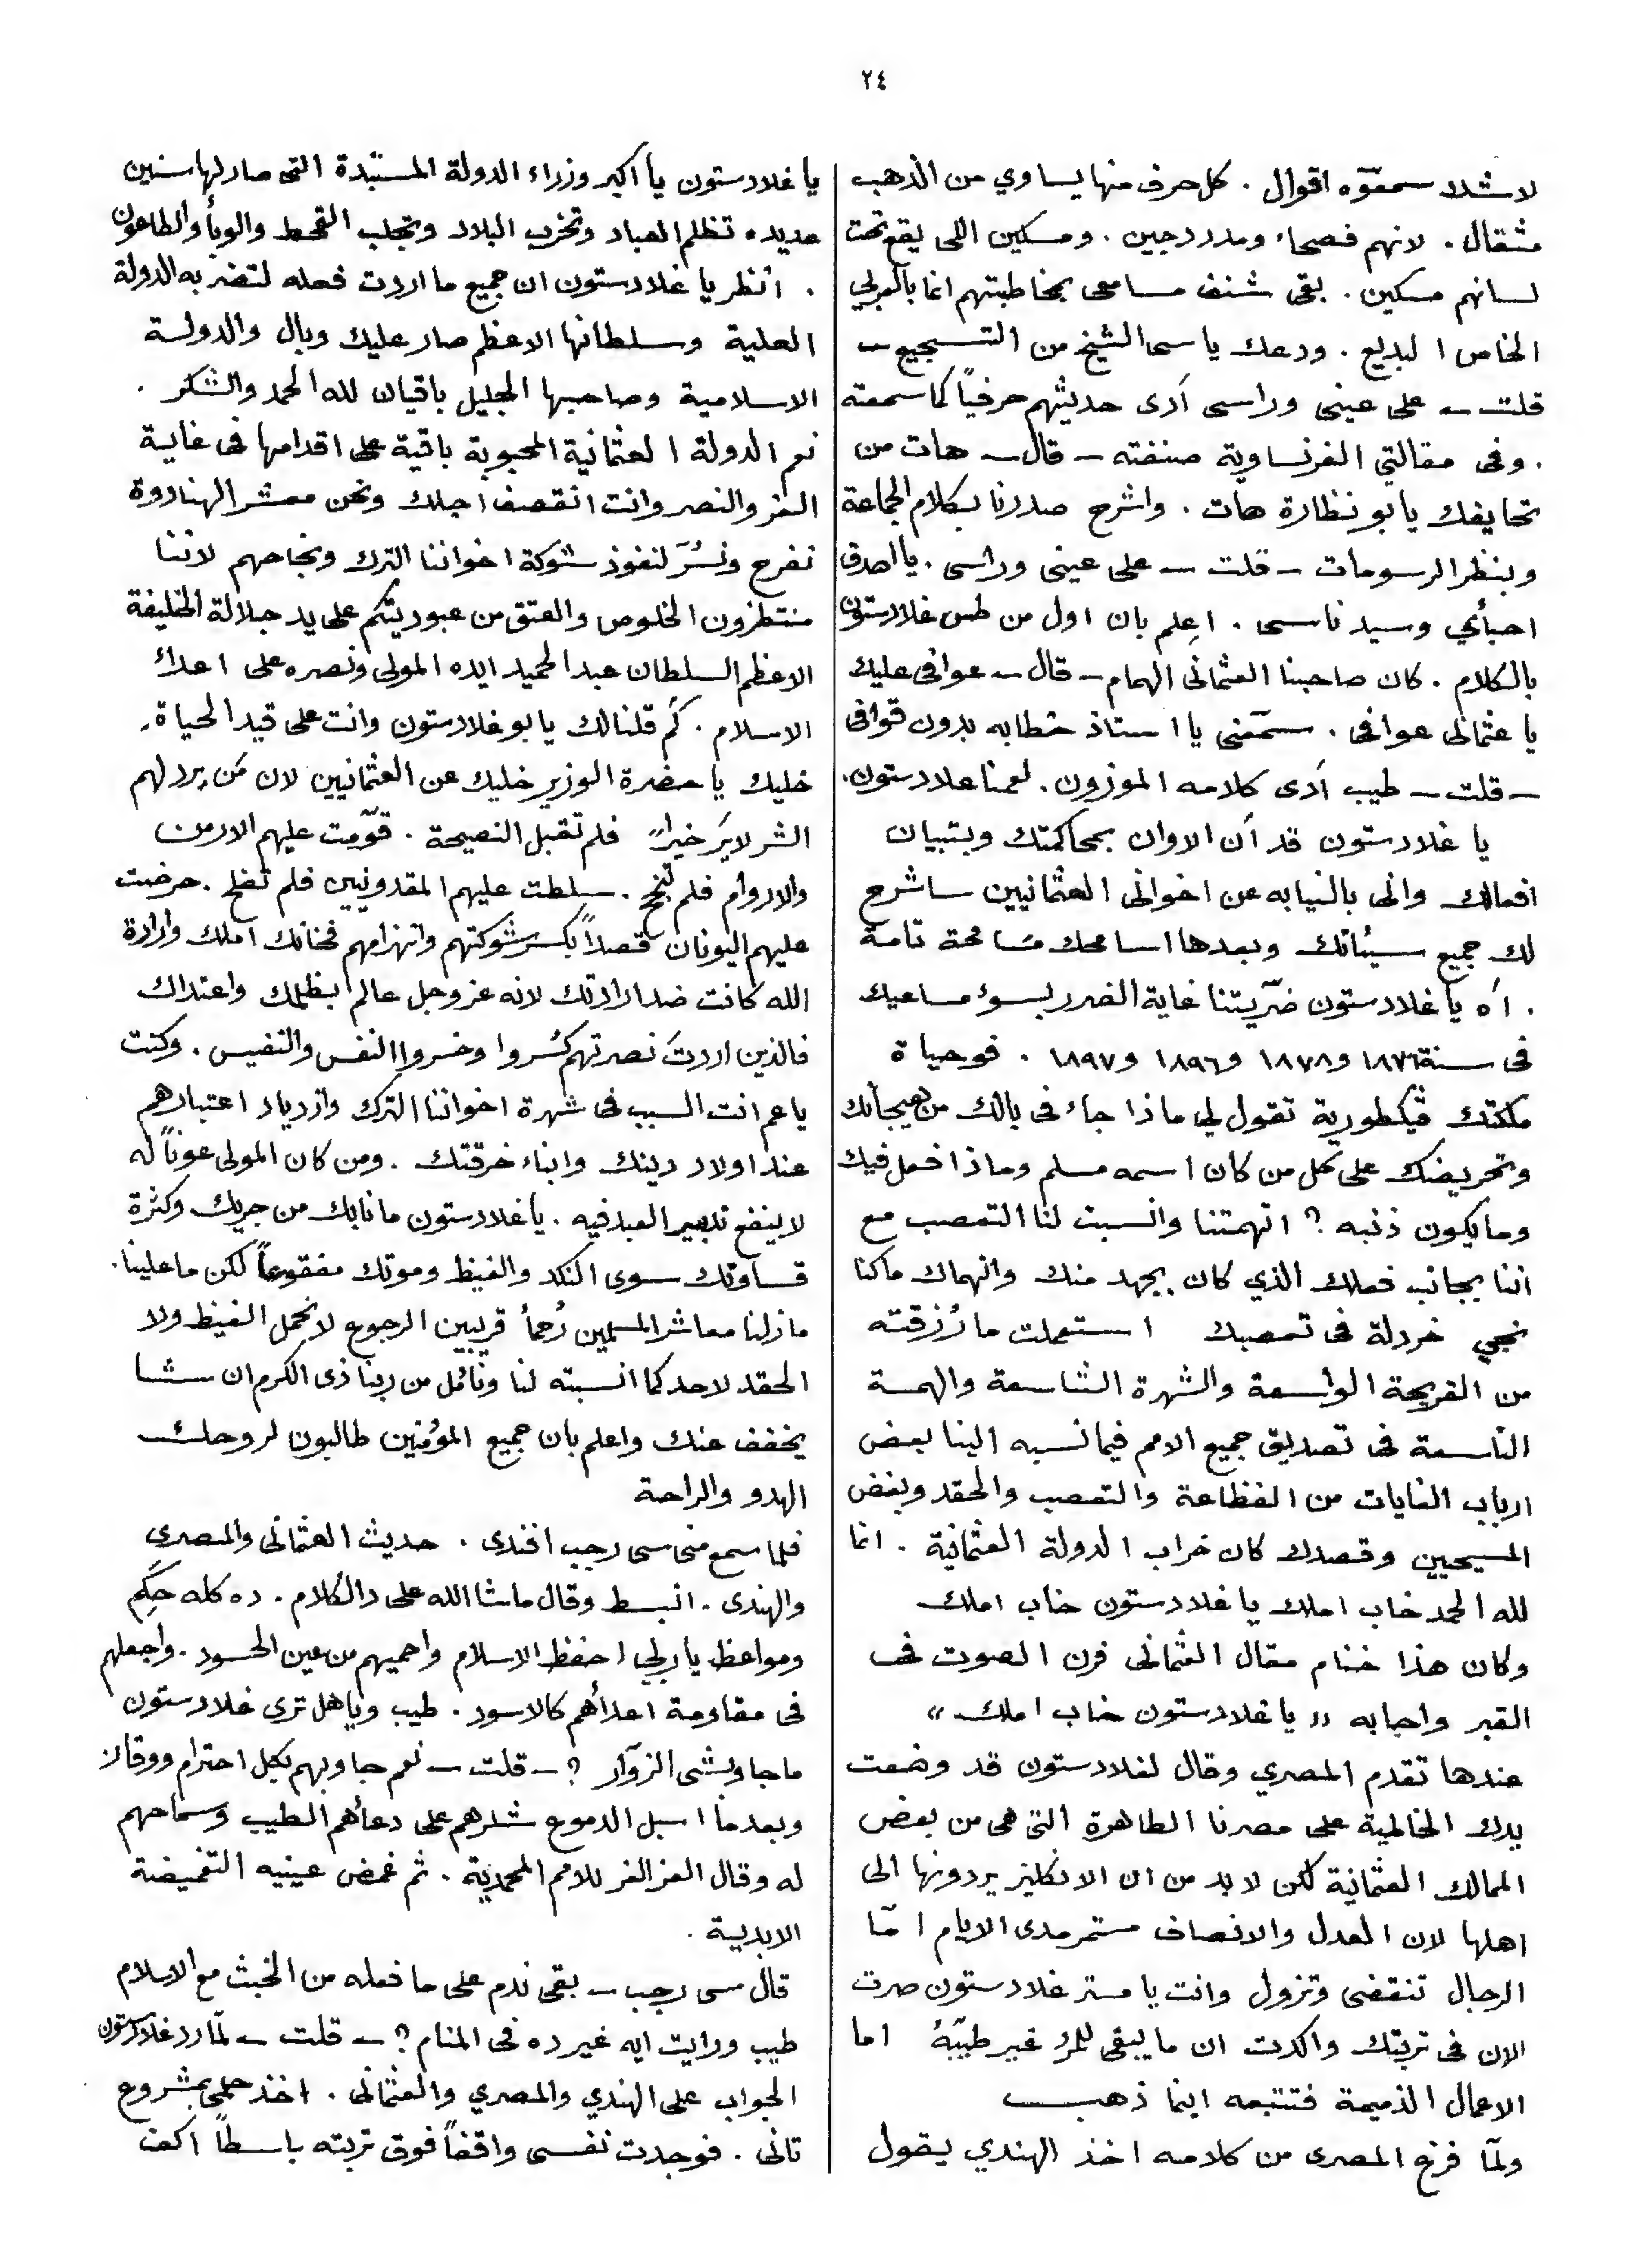 ٢٤
لا شدد سمعوّه اقوال . كل حرف منها يساوي من الذهب
مثقال . لانهم فصحاء ومدردحين . ومسكين اللى يقع تحت
لسانهم مسكين . بقى شنف مسامعى بمخاطبتهم انما بالعربي
الخاص البديع . ودعك يا سى الشيخ من التسجيع —
قلت — على عينى وراسى أدى حديثهم حرفياً كما سمعته
. وفى مقالتي الفرنساوية صنفته — قال — هات من
تحايفك يا بو نظارة هات . واشرح صدرنا بكلام الجماعة
وبنظر الرسومات — قلت — على عينى وراسى . يا اصدق
احبأي وسيد ناسى . اعلم بان اول من طس غلادستون
بالكلام . كان صاحبنا العثمانى الهمام — قال — عوافى عليك
يا عثمانى عوافى . سمّعنى يا استاذ خطابه بدون قوافى
— قلت — طيب أدى كلامه الموزون . لعمنا غلادستون .
يا غلادستون قد آن الاوان بمحاكمتك وبتبيان
افعالك وانى بالنيابه عن اخوانى العثمانيين ساشرح
لك جميع سيئاتك وبعدها اسامحك مسامحة تامة
. اه يا غلادستون ضرّيتنا غاية الضرر بسوء مساعيك
فى سنة ١٨٧٦ و١٨٧٨ و١٨٩٦ و١٨٩٧ . فوحياة
ملكتك ڤيكطورية تقول لي ماذا جاء فى بالك من تهييجاتك
وتحريضك على كل من كان اسمه مسلم وماذا فعل فيك
وما يكون ذنبه ؟ اتهمتنا وانسبت لنا التعصب مع
اننا بجانب فعلك الذي كان بجهد منك وانهماك ما كنا
نجي خردلة فى تعصبك استعملت ما رُزقته
من القريحة الواسعة والشهرة الشاسعة والهمة
التاسعة فى تصديق جميع الامم فيما نسبه الينا بعض
ارباب الغايات من الفظاعة والتعصب والحقد وبغض
المسيحيين وقصدك كان خراب الدولة العثمانية . انما
لله الحمد خاب املك يا غلادستون خاب املك
وكان هذا ختام مقال العثمانى فرن الصوت فى
القبر واجابه « يا غلادستون خاب املك »
عندها تقدم المصري وقال لغلادستون قد وضعت
يدك الظالمة على مصرنا الطاهرة التى هى من بعض
الممالك العثمانية لكن لا بد من ان الانكليز يردونها الى
اهلها لان العدل والانصاف مستمر مدى الايام امّا
الرجال تنقضى وتزول وانت يا مستر غلادستون صرت
الان فى تربتك واكدت ان ما يبقى للمرء غير طيبهُ اما
الاعمال الذميمة فتتبعه اينما ذهب
ولمّا فرغ المصرى من كلامه اخذ الهندي يقول
يا غلادستون يا اكبر وزراء الدولة المستبدة التى صار لها سنين
عديده تظلم العباد وتخرب البلاد وتجلب القحط والوبأ والطاعون
. انظر يا غلادستون ان جميع ما اردت فعله لتضر به الدولة
العلية وسلطانها الاعظم صار عليك وبال والدولة
الاسلامية وصاحبها الجليل باقيان لله الحمد والشكر .
نعم الدولة العثمانية المحبوبة باقية على اقدامها فى غاية
العز والنصر وانت انقصف اجلك ونحن معشر الهنادوة
نفرح ونُسرّ لنفوذ شوكة اخواننا الترك ونجاحهم لاننا
منتظرون الخلوص والعتق من عبوديتكم على يد جلالة الخليفة
الاعظم السلطان عبد الحميد ايده المولى ونصره على اعداء
الاسلام . كم قلنا لك يا بو غلادستون وانت على قيد الحياة .
خليك يا حضرة الوزير خليك عن العثمانيين لان مَن يرد لهم
الشر لا يرَ خيراً فلم تقبل النصيحة . قوّمت عليهم الارمن
والاروام فلم تنجح . سلطت عليهم المقدونيين فلم تفلح . حرضت
عليهم اليونان قصداً بكسر شوكتهم وانهزامهم فخانك املك وارادة
الله كانت ضد ارادتك لانه عز وجل عالم بظلمك واعتداك
فالذين اردتَ نصرتهم كُسروا وخسروا النفس والنفيس . وكنت
يا عم انت السبب فى شهرة اخواننا الترك وازدياد اعتبارهم
عند اولاد دينك وابناء خرقتك . ومن كان المولى عوناً له
لا ينفع تدبير العبد فيه . يا غلادستون ما نابك من جريك وكثرة
قساوتك سوى النكد والغيظ وموتك مفقوعاً لكن ما علينا .
ما زلنا معاشر المسلمين رُحمأ قريبين الرجوع لا نحمل الغيظ ولا
الحقد لاحد كما انسبته لنا ونأمل من ربنا ذى الكرم ان شا
يخفف عنك واعلم بان جميع المؤمنين طالبون لروحك
الهدو والراحة
فلما سمع منى سى رجب افندى . حديث العثمانى والمصرى
والهندى . انبسط وقال ماشا الله على دالكلام . ده كله حِكَم
ومواعظ يا ربي احفظ الاسلام واحميهم من عين الحسود . واجعلهم
فى مقاومة اعدأهم كالاسود . طيب ويا هل ترى غلادستون
ما جاوبشى الزوّار ؟ — قلت — نعم جاوبهم بكل احترام ووقار
وبعدما اسبل الدموع شكرهم على دعأهم الطيب وسماحهم
له وقال العز العز للامم المحمدية . ثم غمض عينيه التغميضة
الابدية .
قال سى رجب — بقى ندم على ما فعله من الخبث مع الاسلام
طيب ورايت ايه غير ده فى المنام ؟ — قلت — لمّا رد غلادستون
الجواب على الهندي والمصري والعثمانى . اخذ حلمى بمشروع
تانى . فوجدت نفسى واقفاً فوق تربته باسطاً اكف